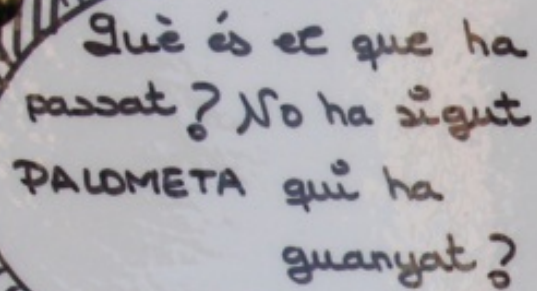 Què és el que ha
passat? No ha sigut
PALOMETA qui ha
guanyat?